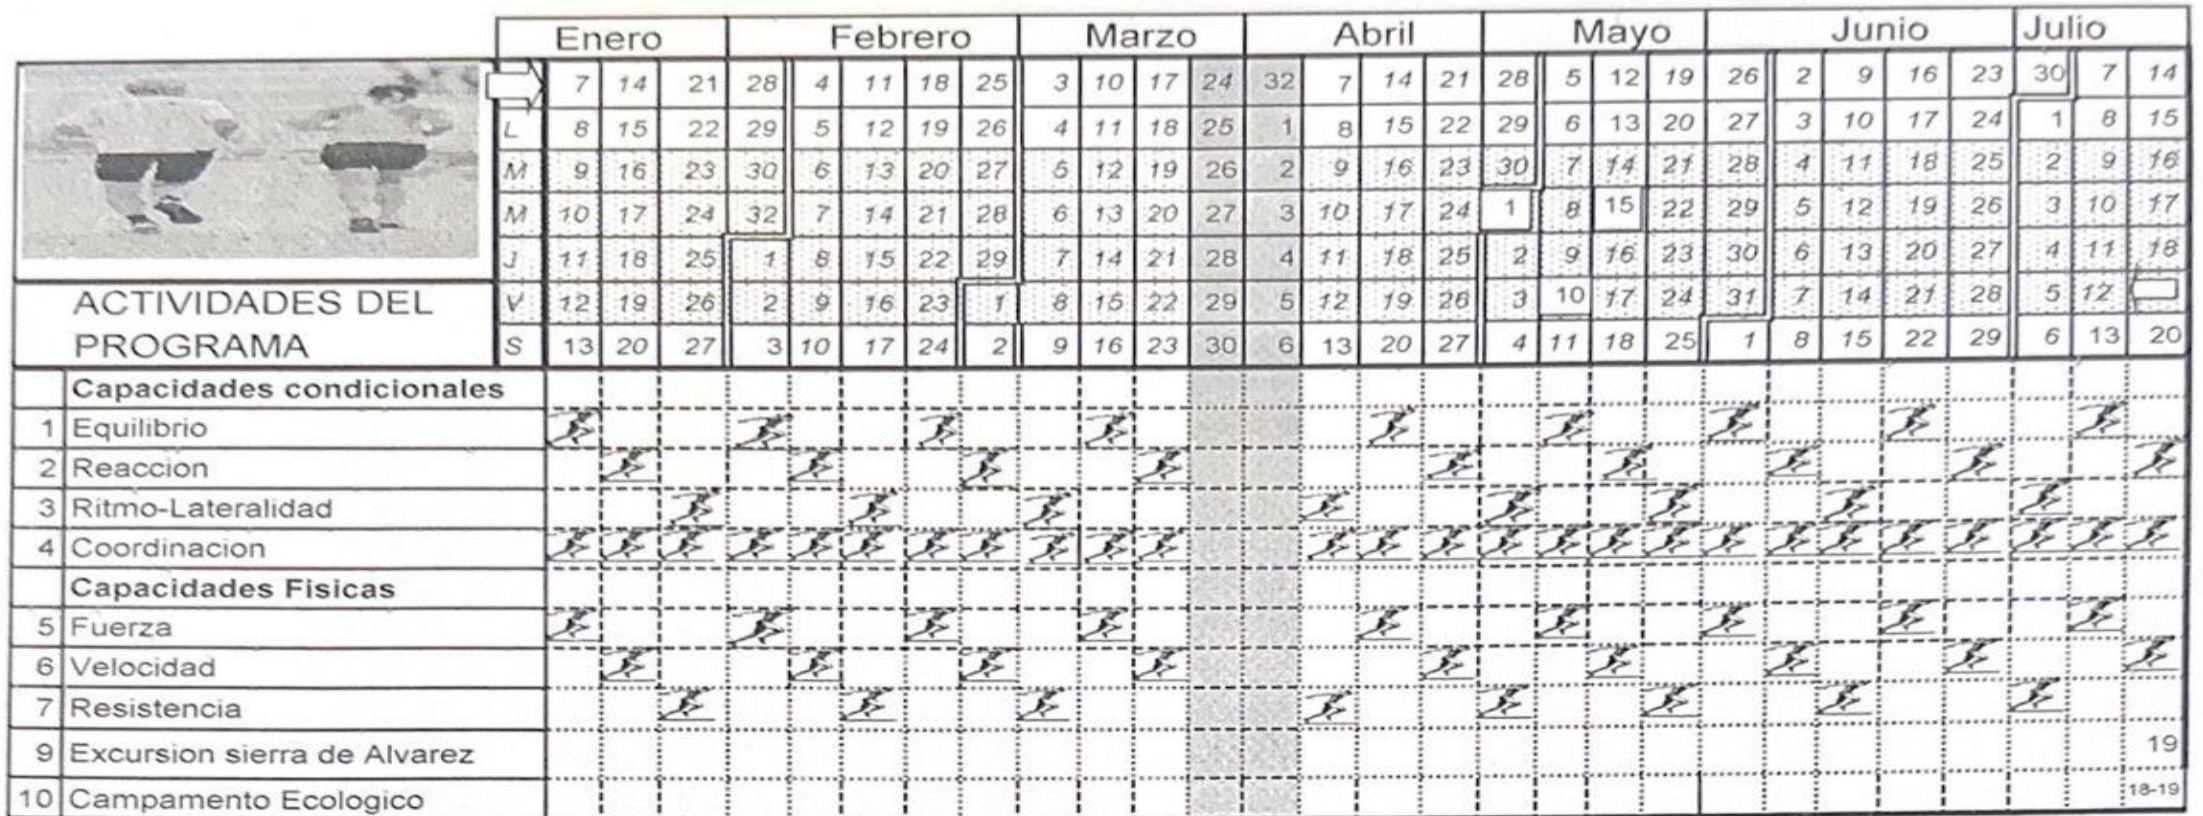 Enero Febrero Marzo Abril Mayo Junio Julio
7 14 21 28 4 11 18 25 3 10 17 24 32 7 14 21 28 5 12 19 26 2 9 16 23 30 7 14
L 8 15 22 29 5 12 19 26 4 11 18 25 1 8 15 22 29 6 13 20 27 3 10 17 24 1 8 15
M 9 16 23 30 6 13 20 27 5 12 19 26 2 9 16 23 30 7 14 21 28 4 11 18 25 2 9 16
M 10 17 24 32 7 14 21 28 6 13 20 27 3 10 17 24 1 8 15 22 29 5 12 19 26 3 10 17
J 11 18 25 1 8 15 22 29 7 14 21 28 4 11 18 25 2 9 16 23 30 6 13 20 27 4 11 18
ACTIVIDADES DEL
V 12 19 26 2 9 16 23 1 8 15 22 29 5 12 19 26 3 10 17 24 31 7 14 21 28 5 12
PROGRAMA
S 13 20 27 3 10 17 24 2 9 16 23 30 6 13 20 27 4 11 18 25 1 8 15 22 29 6 13 20
Capacidades condicionales
1 Equilibrio
2 Reaccion
3 Ritmo-Lateralidad
4 Coordinacion
Capacidades Fisicas
5 Fuerza
6 Velocidad
7 Resistencia
9 Excursion sierra de Alvarez 19
10 Campamento Ecologico 18-19